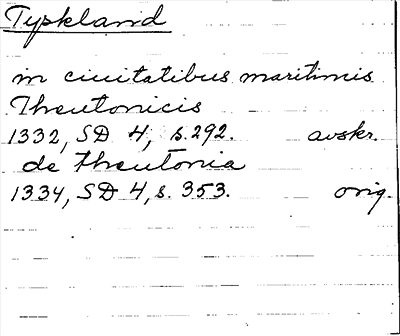 Typkland
in ciuitatibus maritimis
Theutonicis
1332, SD 4, s. 292. avskr.
de Theutonia
1334, SD 4, s. 353. orig.